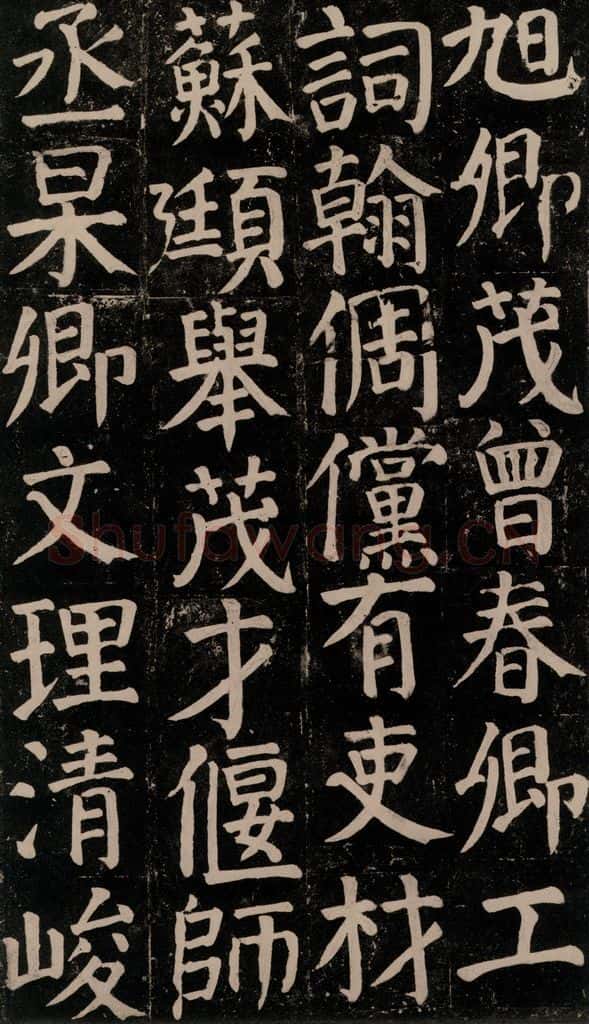 旭卿茂曽春卿工
詞翰倜儻有吏材
蘇頲舉茂才偃師
丞杲卿文理清峻
Shufawang.CN